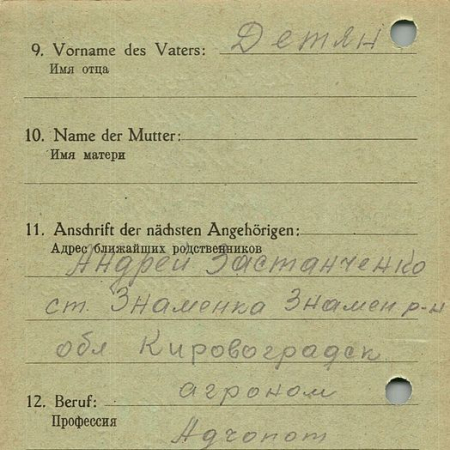 9. Vorname des Vaters: Детян
Имя отца
10. Name der Mutter:
Имя матери
11. Anschrift der nächsten Angehörigen:
Адрес ближайших родственников
Андрей Застанченко
ст. Знаменка Знамен р-н
обл Кировоградск
агроном
12. Beruf:
Профессия
Адчопот